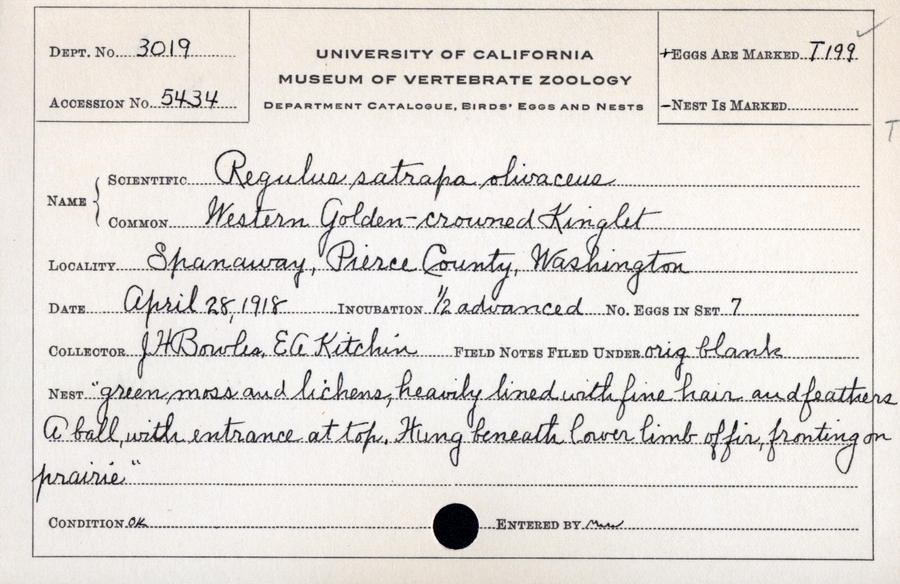 DEPT. No. 3019
ACCESSION No. 5434
UNIVERSITY OF CALIFORNIA
MUSEUM OF VERTEBRATE ZOOLOGY
DEPARTMENT CATALOGUE, BIRDS' EGGS AND NESTS
+EGGS ARE MARKED T199
-NEST IS MARKED
T
NAME
SCIENTIFIC Regulus satrapa olivaceus
COMMON Western Golden-crowned Kinglet
LOCALITY Spanaway, Pierce County, Washington
DATE April 28, 1918 INCUBATION 1/2 advanced NO. EGGS IN SET 7
COLLECTOR J H Bowles, E A Kitchin FIELD NOTES FILED UNDER orig blank
NEST "green moss and lichens, heavily lined with fine hair and feathers
A ball, with entrance at top. Hung beneath lower limb of fir, fronting on
prairie"
CONDITION OK ENTERED BY